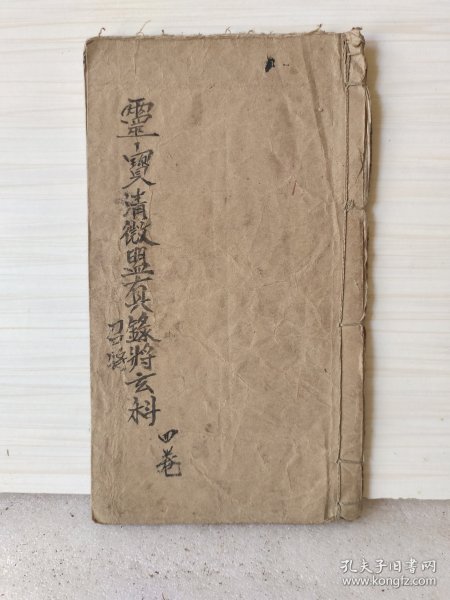 靈寶清微盟真錄將玄科
召將
四卷
孔夫子旧书网
www.kongfz.com